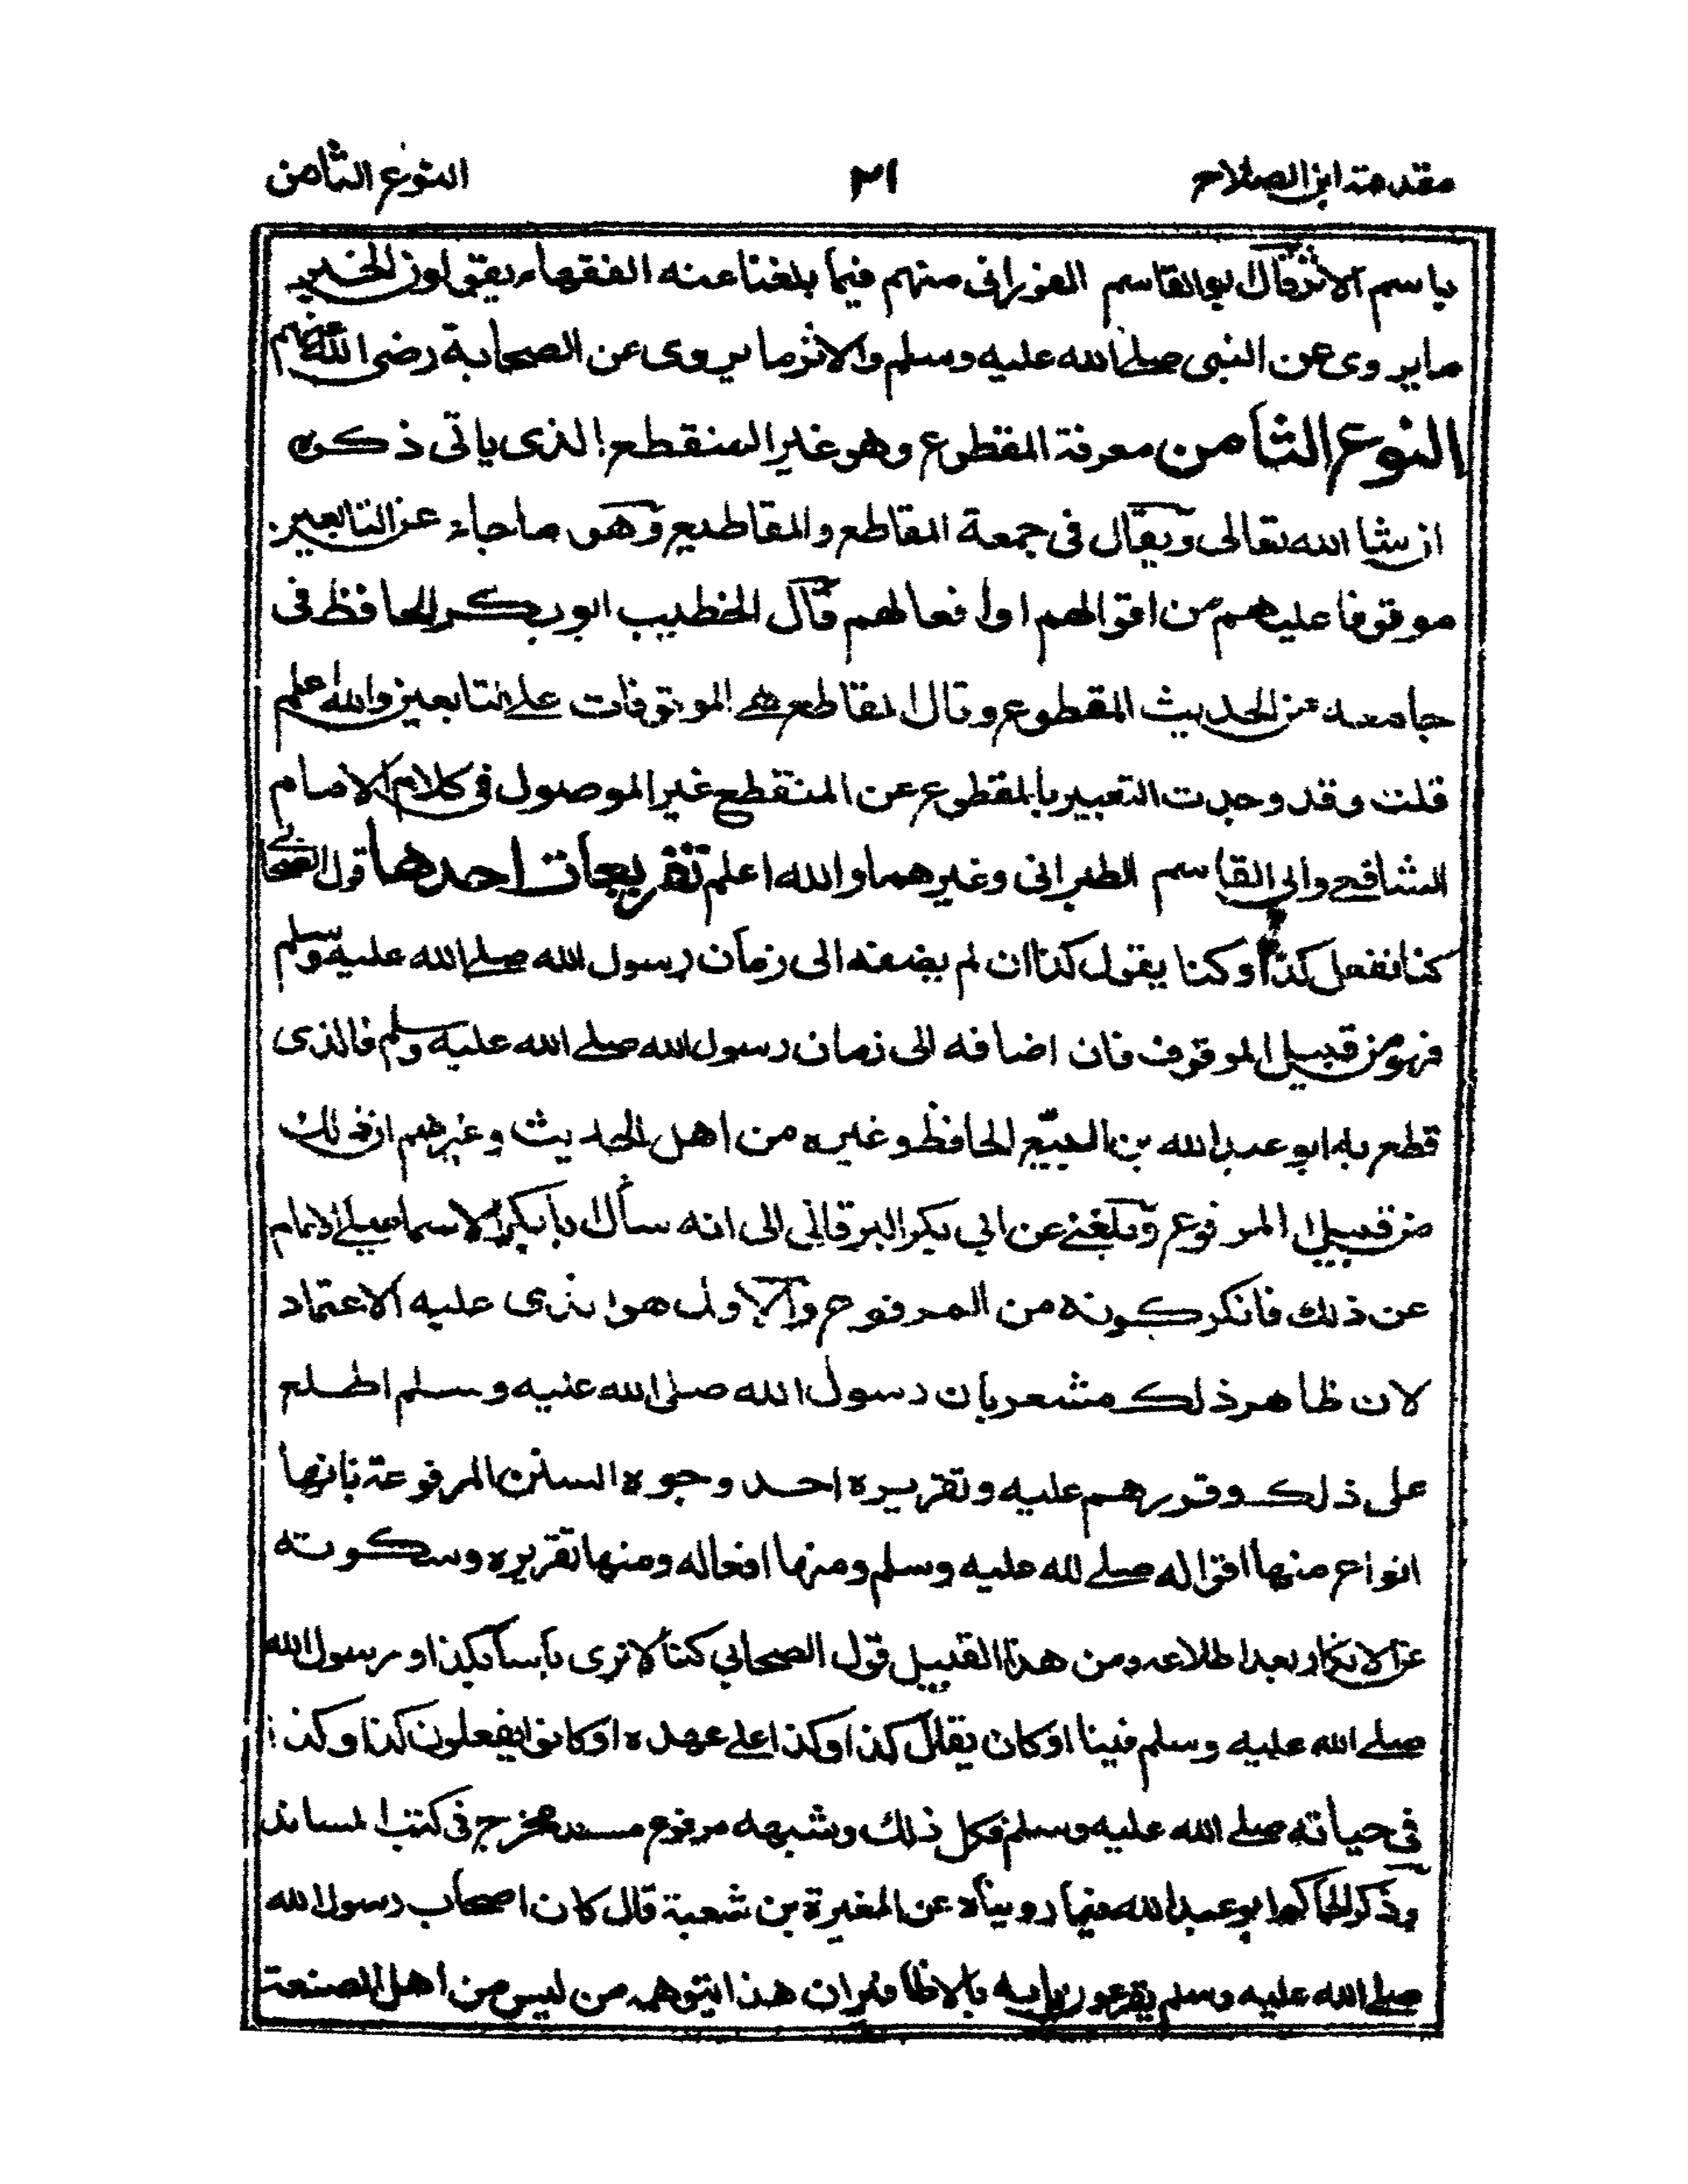 مقدمته ابن الصلاح ٣١ النوع الثامن
باسم الاثر قال ابو القاسم الفورانى منهم فيما بلغنا عنه الفقهاء يقولون الخبر
ما يروى عن النبى صلى الله عليه وسلم والاثر ما يروى عن الصحابة رضى الله عنهم
النوع الثامن معرفة المقطوع وهو غير المنقطع الذى ياتى ذكره
ان شا الله تعالى ويقال فى جمعة المقاطع والمقاطيع وهو ما جاء عن التابعين
موقوفا عليهم من اقوالهم او افعالهم قال الخطيب ابو بكر الحافظ فى
جامعه من الحديث المقطوع وقال المقاطع هى الموقوفات على التابعين والله اعلم
قلت وقد وجدت التعبير بالمقطوع عن المنقطع غير الموصول فى كلام الامام
الشافعى وابى القاسم الطبرانى وغيرهما والله اعلم تفريعات احدها قول الصحابى
كنا نفعل كذا او كنا يقول كذا ان لم يضفه الى زمان رسول الله صلى الله عليه وسلم
فهو من قبيل الموقوف فان اضافه الى زمان رسول الله صلى الله عليه وسلم فالذى
قطع به ابو عبد الله بن البيّع الحافظ وغيره من اهل الحديث وغيرهم ان ذلك
من قبيل المرفوع وبلغنى عن ابى بكر البرقانى الى انه سأل بابكر الاسماعيلى الامام
عن ذلك فانكر كونه من المرفوع والاول هوا بذى عليه الاعتماد
لان ظاهر ذلك مشعر بان رسول الله صلى الله عليه وسلم اطلع
على ذلك وقررهم عليه وتقريره احد وجوه السنن المرفوعة بانها
انواع منها اقواله صلى لله عليه وسلم ومنها افعاله ومنها تقريره وسكوته
عن الانكار بعد اطلاعه ومن هذا القبيل قول الصحابى كنا لا نرى بأسا بكذا او رسول الله
صلى الله عليه وسلم فينا او كان يقال كذا وكذا على عهده او كانوا يفعلون كذا وكذا
فى حياته صلى الله عليه وسلم فكل ذلك وشبهه مرفوع مسند مخرج فى كتب المساند
وذكر الحاكم ابو عبد الله فيما رويناه عن المغيرة بن شعبة قال كان اصحاب رسول الله
صلى الله عليه وسلم يقرعون بابه بالاظافير ان هذا يتوهمه من ليس من اهل الصنعة